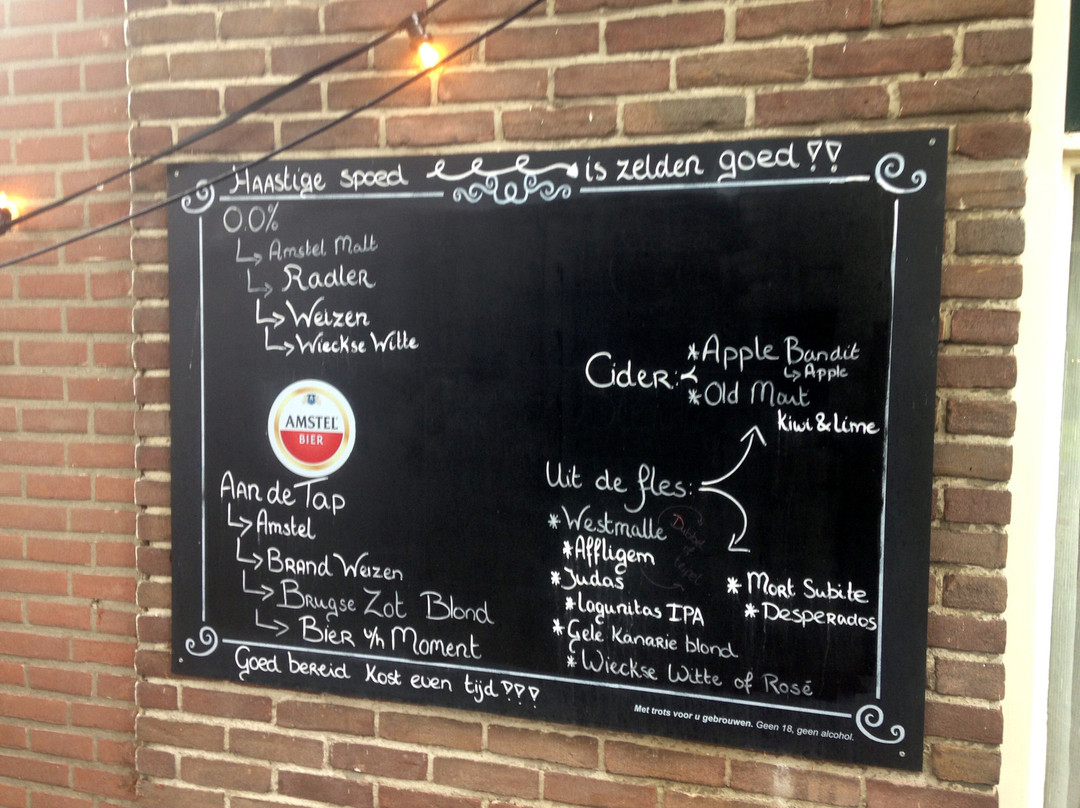 Haastige spoed is zelden goed!!
0.0%
Amstel Malt
Radler
Weizen
Wieckse Witte
AMSTEL
BIER
Aan de Tap
Amstel
Brand Weizen
Brugse Zot Blond
Bier v/h Moment
Cider:
*Apple Bandit
Apple
*Old Mout
Kiwi & Lime
Uit de fles:
*Westmalle
Dubbel
of
Tripel
*Affligem
*Judas
*Lagunitas IPA
*Gele Kanarie blond
*Wieckse Witte of Rosé
*Mort Subite
*Desperados
Goed bereid kost even tijd!!!
Met trots voor u gebrouwen. Geen 18, geen alcohol.